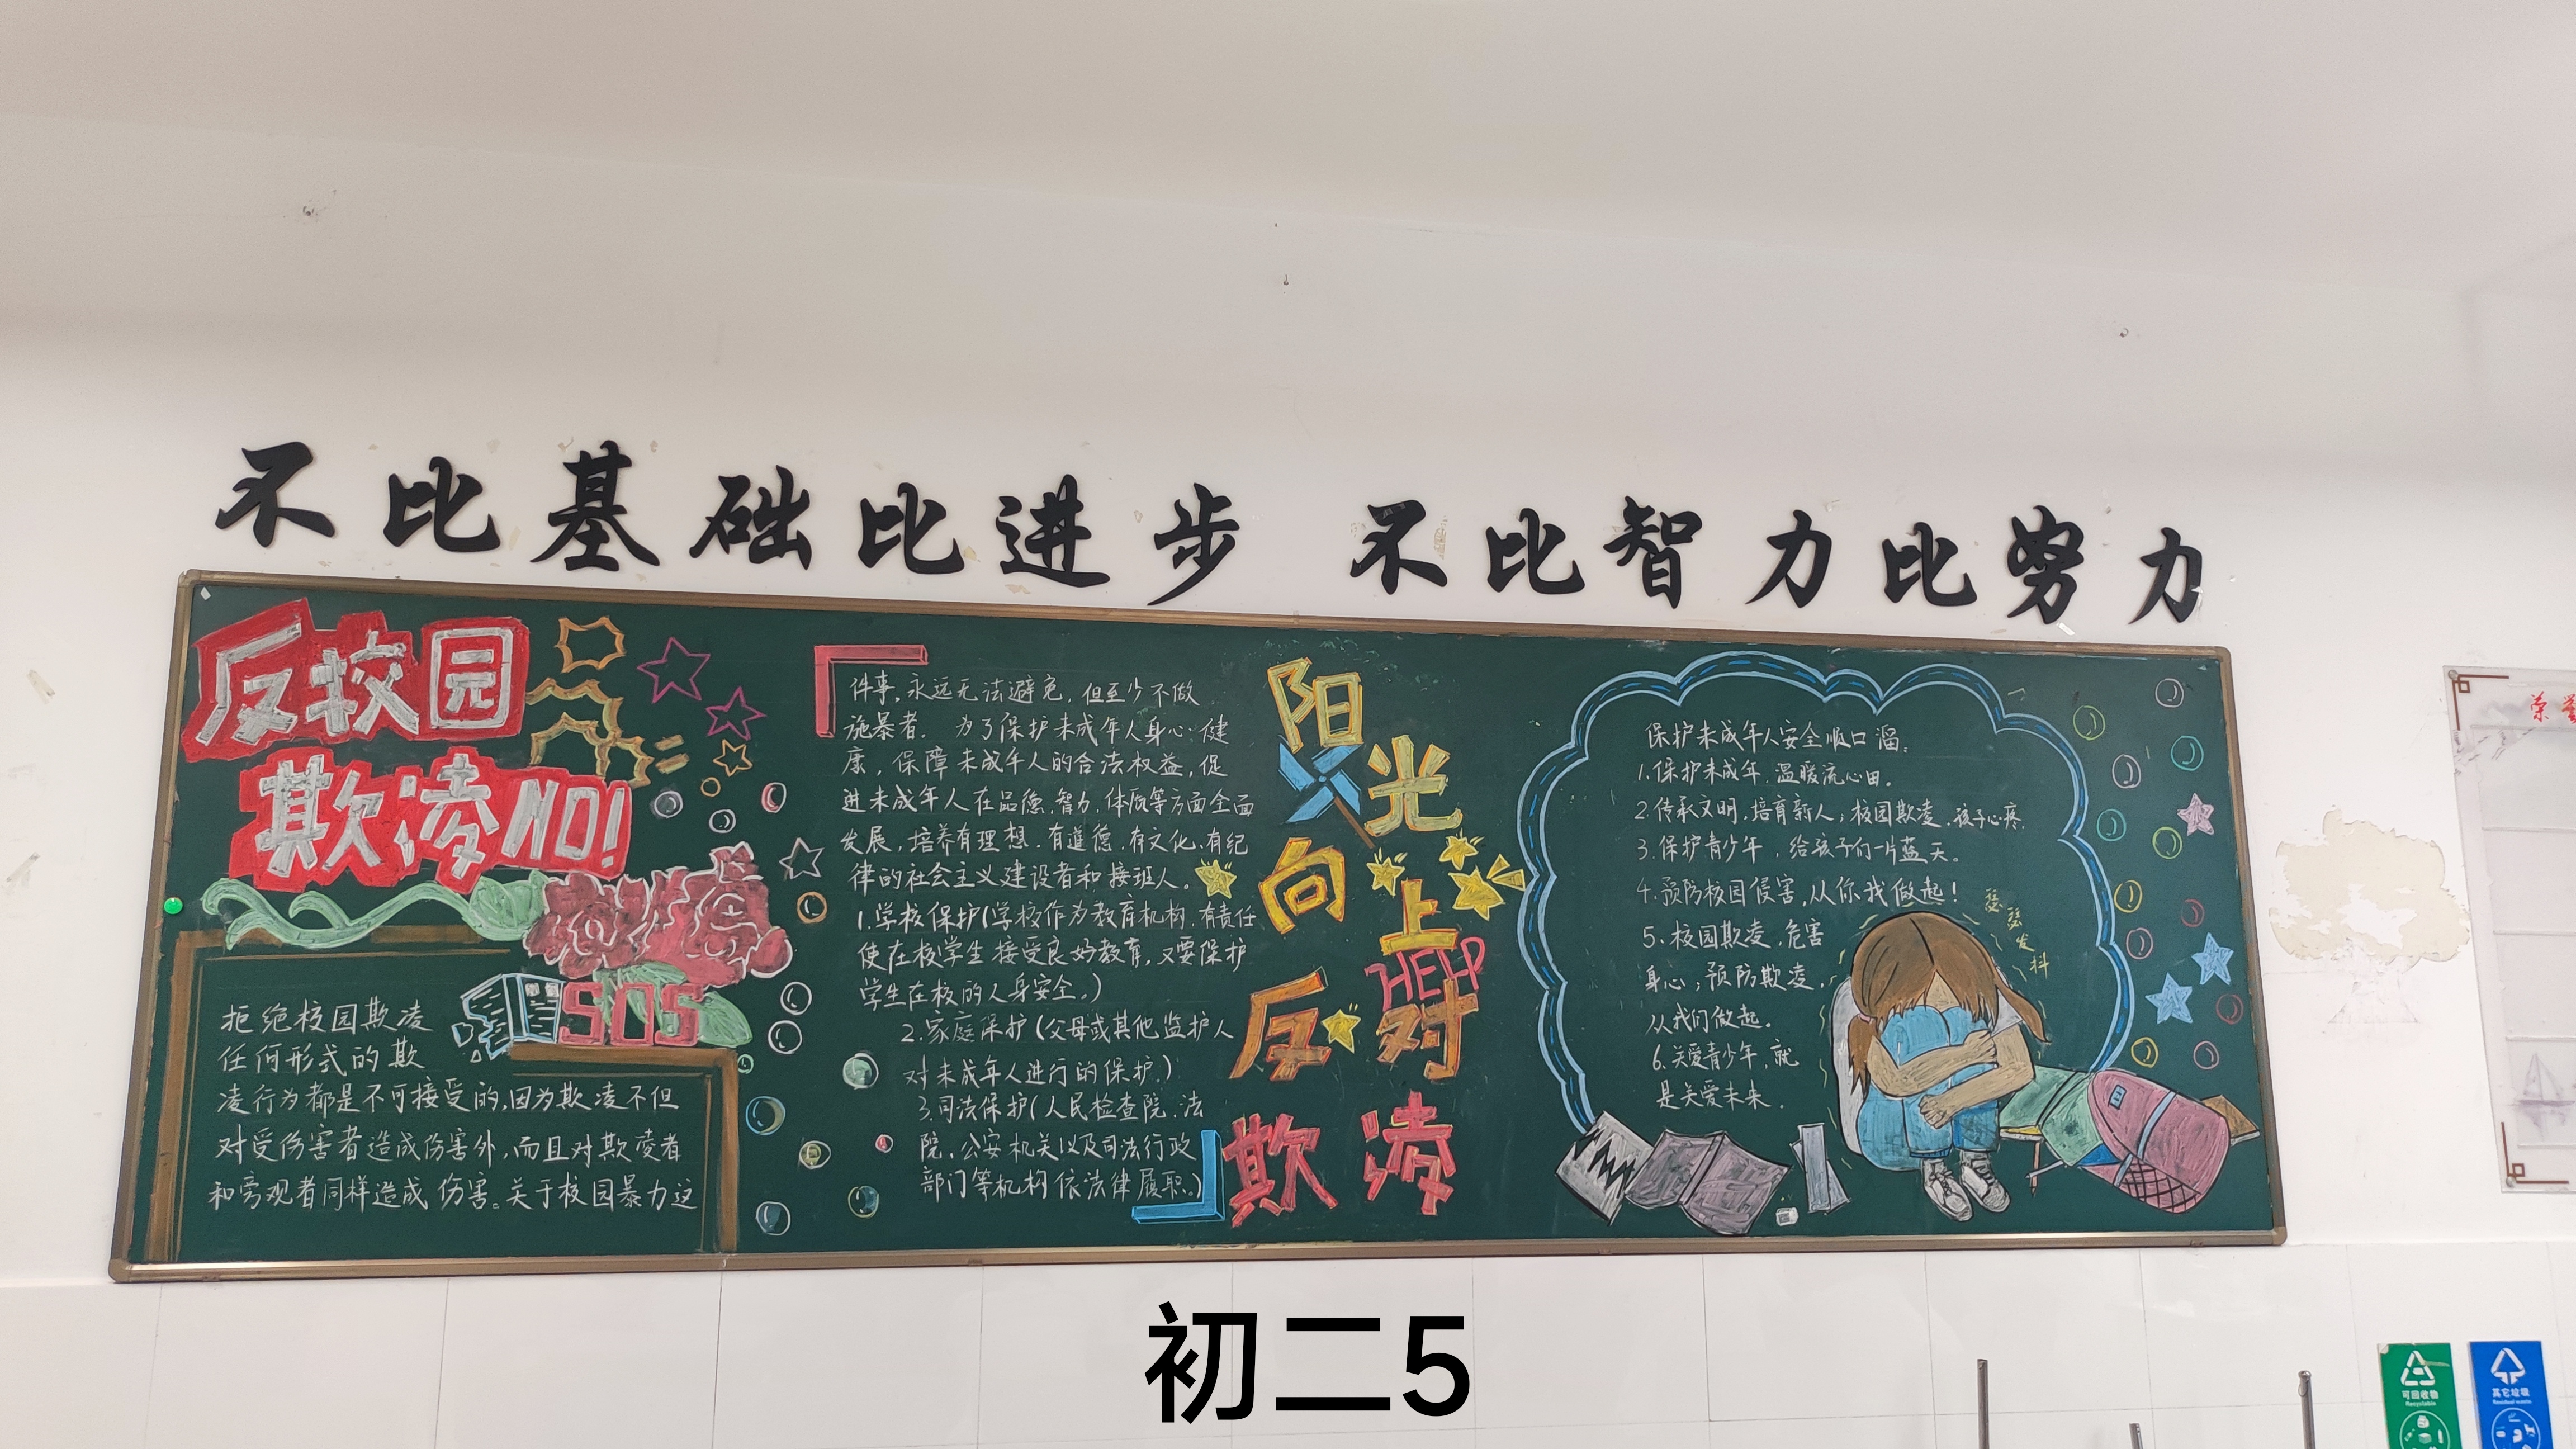 不比基础比进步 不比智力比努力
反校园
欺凌NO!
SOS
拒绝校园欺凌
任何形式的欺
凌行为都是不可接受的,因为欺凌不但
对受伤害者造成伤害外,而且对欺凌者
和旁观者同样造成伤害。关于校园暴力这
件事,永远无法避免,但至少不做
施暴者。为了保护未成年人身心健
康,保障未成年人的合法权益,促
进未成年人在品德、智力、体质等方面全面
发展,培养有理想、有道德、有文化、有纪
律的社会主义建设者和接班人。
1.学校保护(学校作为教育机构,有责任
使在校学生接受良好教育,又要保护
学生在校的人身安全。)
2.家庭保护(父母或其他监护人
对未成年人进行的保护。)
3.司法保护(人民检查院、法
院、公安机关以及司法行政
部门等机构依法律履职。)
阳光
向上
HELP
反对
欺凌
保护未成年人安全顺口溜:
1.保护未成年,温暖流心田。
2.传承文明,培育新人;校园欺凌,孩子心疼.
3.保护青少年,给孩子们一片蓝天。
4.预防校园侵害,从你我做起!
5、校园欺凌,危害
身心;预防欺凌,
从我们做起。
6.关爱青少年,就
是关爱未来.
瑟瑟发抖
荣誉
初二5
可回收物
Recyclable
其它垃圾
Residual waste